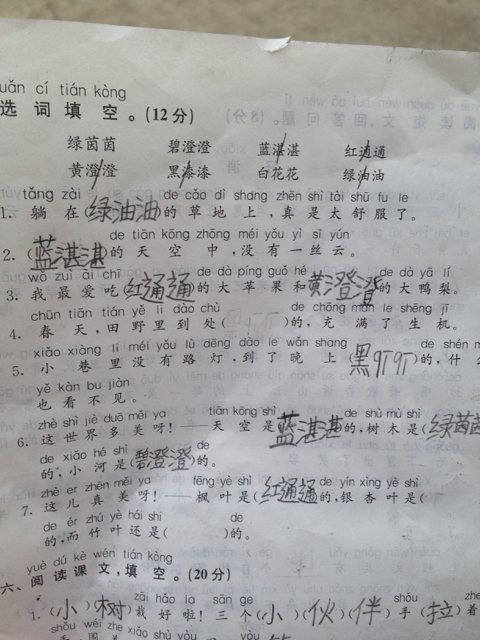 uǎn cí tián kòng
选词填空。(12分)
绿茵茵 碧澄澄 蓝湛湛 红通通
黄澄澄 黑漆漆 白花花 绿油油
tǎng zài de cǎo dì shang zhēn shì tài shū fu le
1. 躺在(绿油油)的草地上,真是太舒服了。
de tiān kōng zhōng méi yǒu yì sī yún
2. (蓝湛湛)的天空中,没有一丝云。
wǒ zuì ài chī de dà píng guǒ hé de dà yā lí
3. 我最爱吃(红通通)的大苹果和(黄澄澄)的大鸭梨。
chūn tiān tián yě lǐ dào chù de chōng mǎn le shēng jī
4. 春天,田野里到处( )的,充满了生机。
xiǎo xiàng lǐ méi yǒu lù dēng dào le wǎn shang de shén m
5. 小巷里没有路灯,到了晚上(黑 )的,什么
yě kàn bu jiàn
也看不见。
zhè shì jiè duō měi ya tiān kōng shì de shù mù shì
6. 这世界多美呀!——天空是(蓝湛湛)的,树木是(绿茵茵
de xiǎo hé shì de
的,小河是(碧澄澄)的。
zhè er zhēn měi ya fēng yè shì de yín xìng yè shì
7. 这儿真美呀!——枫叶是(红通通)的,银杏叶是(
de ér zhú yè hái shi de
的,而竹叶还是( )的。
yuè dú kè wén tián kòng
六、阅读课文,填空。(20分)
zāi hǎo la sān ge shǒu zhe
1. (小)(树)栽好啦!三个(小)(伙)(伴)手(拉)着